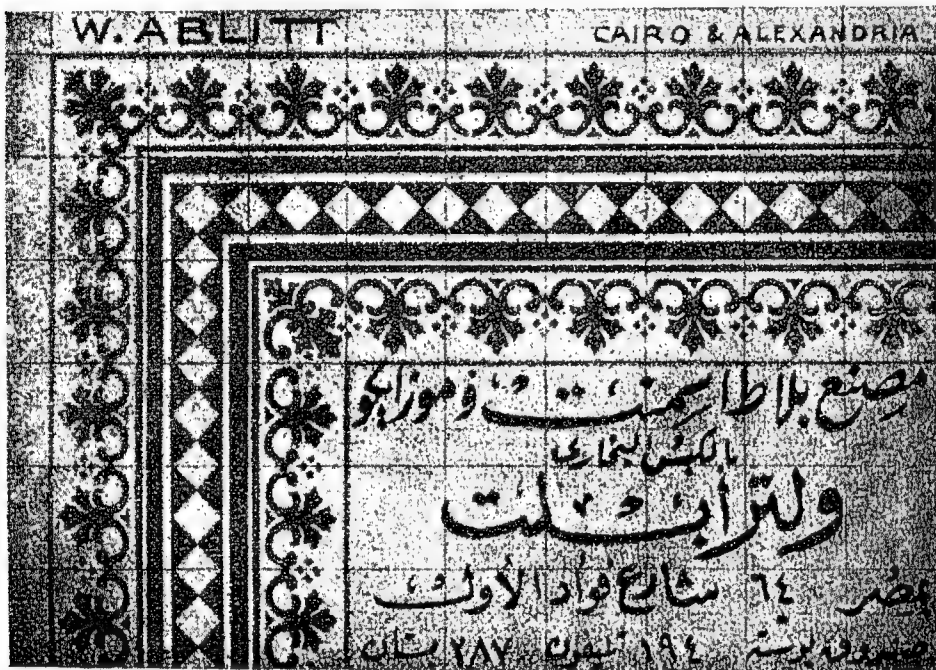 W. ABLITT CAIRO & ALEXANDRIA
مصنع بلاط اسمنت وموزايكو
بالكبس البخارى
ولتر ابلت
بمصر ٦٤ شارع فؤاد الأول
صندوق بوستة ١٩٤ تليفون ٢٨٧ بستان